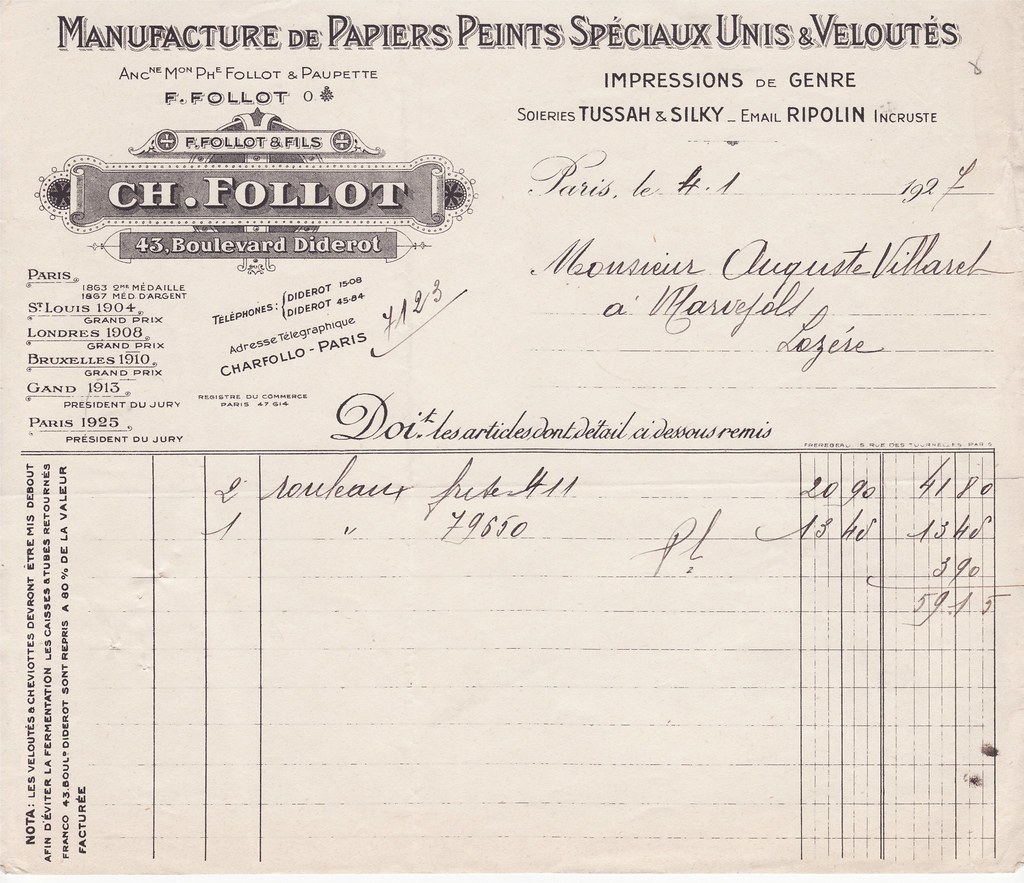 MANUFACTURE DE PAPIERS PEINTS SPÉCIAUX UNIS & VELOUTÉS
ANCNE MON PHE FOLLOT & PAUPETTE
F. FOLLOT O.
F. FOLLOT & FILS
CH. FOLLOT
43, Boulevard Diderot
IMPRESSIONS DE GENRE
SOIERIES TUSSAH & SILKY _ EMAIL RIPOLIN INCRUSTE
Paris, le 4.1 1927
Monsieur Auguste Villaret
à Marvejols
Lozére
PARIS
1863 2ME MÉDAILLE
1867 MÉD. D'ARGENT
ST LOUIS 1904
GRAND PRIX
LONDRES 1908
GRAND PRIX
BRUXELLES 1910
GRAND PRIX
GAND 1913
PRESIDENT DU JURY
PARIS 1925
PRÉSIDENT DU JURY
TÉLÉPHONES: DIDEROT 15-08
DIDEROT 45-84
Adresse Télégraphique
CHARFOLLO - PARIS
7123
REGISTRE DU COMMERCE
PARIS 47 614
Doit les articles dont détail ci dessous remis
FREREBEAU 5 RUE DES TOURNELLES. PARIS
2 rouleaux frise 411 20 90 41 80
1 " 79650 13 45 13 45
3 90
59.15
NOTA: LES VELOUTÉS & CHEVIOTTES DEVRONT ÊTRE MIS DEBOUT
AFIN D'ÉVITER LA FERMENTATION LES CAISSES & TUBES RETOURNÉS
FRANCO 43, BOULD DIDEROT SONT REPRIS A 80 % DE LA VALEUR
FACTURÉE